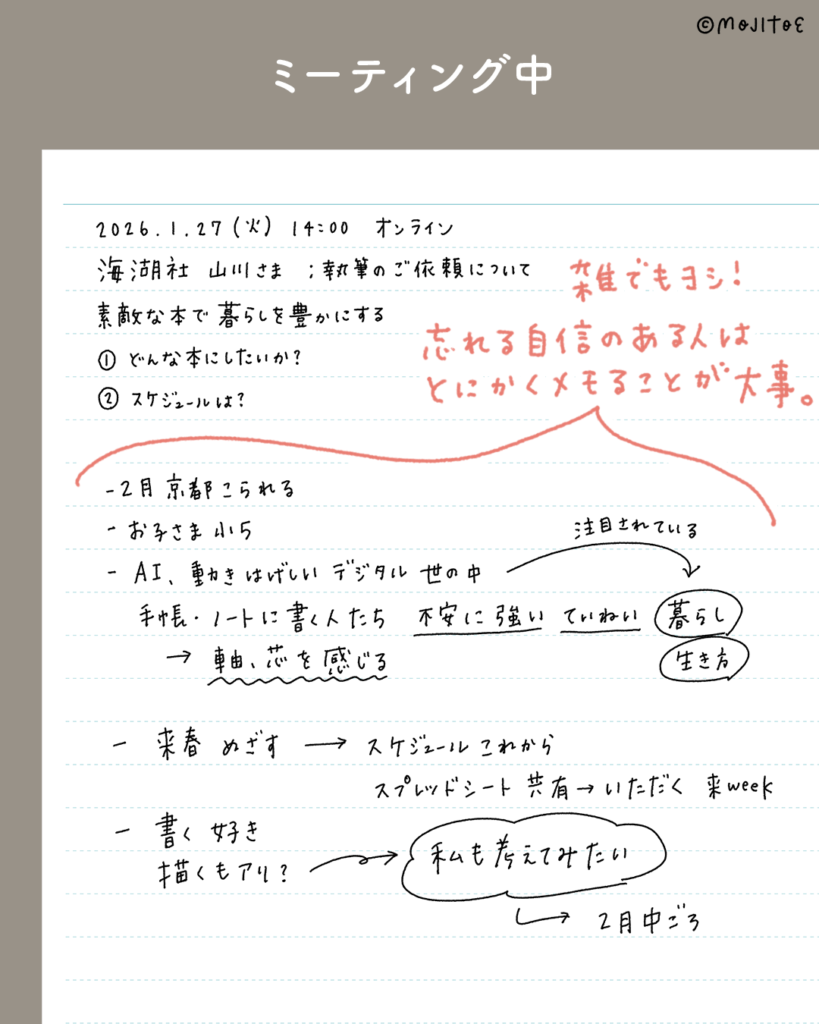 ©MOJITOE
ミーティング中
2026.1.27(火) 14:00 オンライン
海湖社 山川さま ;執筆のご依頼について
素敵な本で暮らしを豊かにする
① どんな本にしたいか?
② スケジュールは?
雑でもヨシ!
忘れる自信のある人は
とにかくメモることが大事。
-2月 京都こられる
- お子さま 小5
- AI、動きはげしい デジタル 世の中
注目されている
手帳・ノートに書く人たち 不安に強い ていねい 暮らし
→ 軸、芯を感じる 生き方
- 来春 めざす → スケジュールこれから
スプレッドシート 共有→いただく 来week
- 書く 好き
描くもアリ? → 私も考えてみたい
→ 2月中ごろ